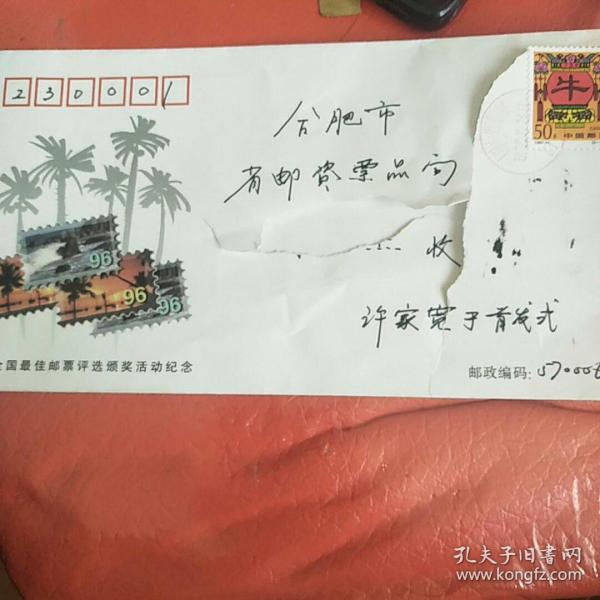 230001
牛
50分
中国邮
合肥市
省邮资票品
收
许家宽于首发式
96
96
96
全国最佳邮票评选颁奖活动纪念
邮政编码: 57000
孔夫子旧书网
www.kongfz.com